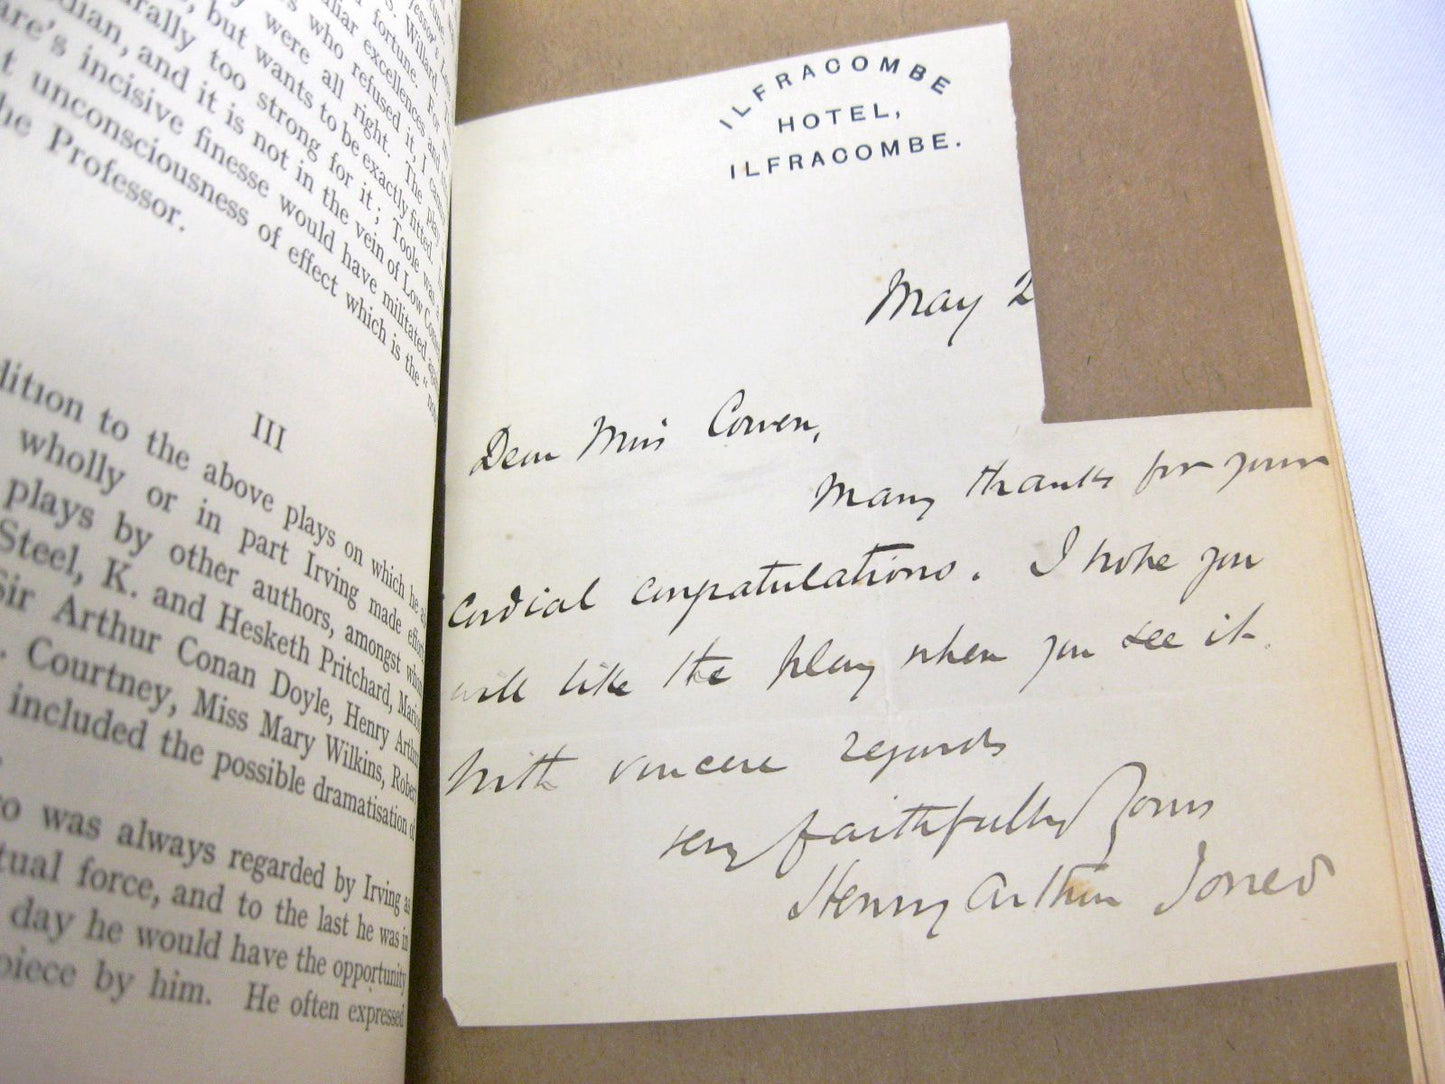 fortune. F
liar excellences and
who refused it, I can
were all right. The play
but wants to be exactly fitted.
rally too strong for it; Toole was
dian, and it is not in the vein of Low Com
are's incisive finesse would have militated
t unconsciousness of effect which is the "
he Professor.
III
dition to the above plays on which he
wholly or in part Irving made effor
plays by other authors, amongst whom
Steel, K. and Hesketh Pritchard, Mario
Sir Arthur Conan Doyle, Henry Arthu
. Courtney, Miss Mary Wilkins, Rober
included the possible dramatisation of
ro was always regarded by Irving as
tual force, and to the last he was in
day he would have the opportunity
piece by him. He often expressed
ILFRACOMBE
HOTEL,
ILFRACOMBE.
May 2
Dear Miss Cowen,
Many thanks for your
cordial congratulations. I hope you
will like the play when you see it.
With sincere regards
very faithfully yours
Henry Arthur Jones